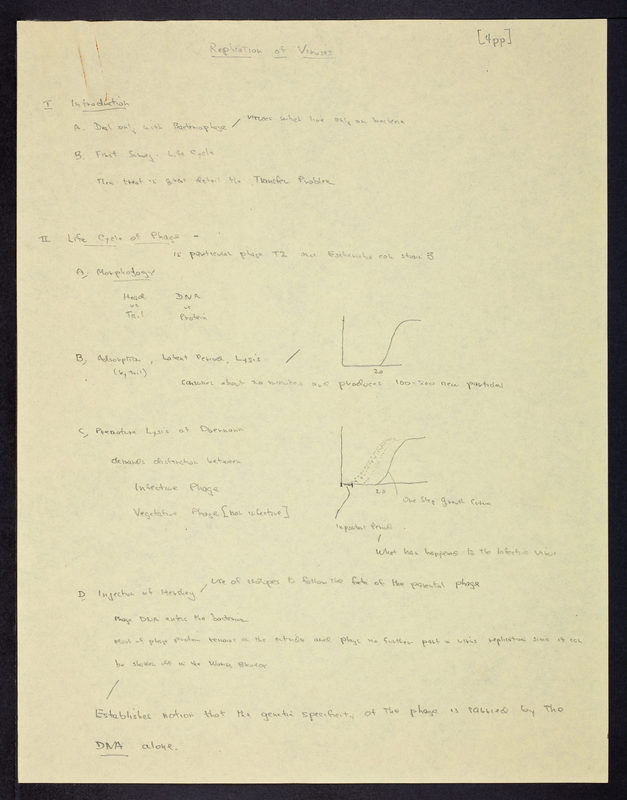 [4pp]
Replication of Viruses
I Introduction
A. Deal only with Bacteriophage / viruses which live only on bacteria
B. First Survey Life Cycle
Then treat in great detail the Transfer Problem
II Life Cycle of Phage -
in particular phage T2 and Escherichia coli strain B
A, Morphology
Head DNA
vs vs
Tail Protein
B, Adsorption, Latent Period, Lysis /
(by tail)
20
consumes about 20 minutes and produces 100-200 new particles
C, Premature Lysis of Doermann
demands distinction between
Infective Phage
Vegetative Phage [non infective]
20
One Step Growth Curve
Important Period
What has happened to the infective virus
D Injection of Hershey / use of isotopes to follow the fate of the parental phage
Phage DNA enters the bacterium
Most of phage protein remains on the outside and plays no further part in virus replication since it can
be shaken off in the Waring Blendor
Establishes notion that the genetic specificity of the phage is carried by the
DNA alone.